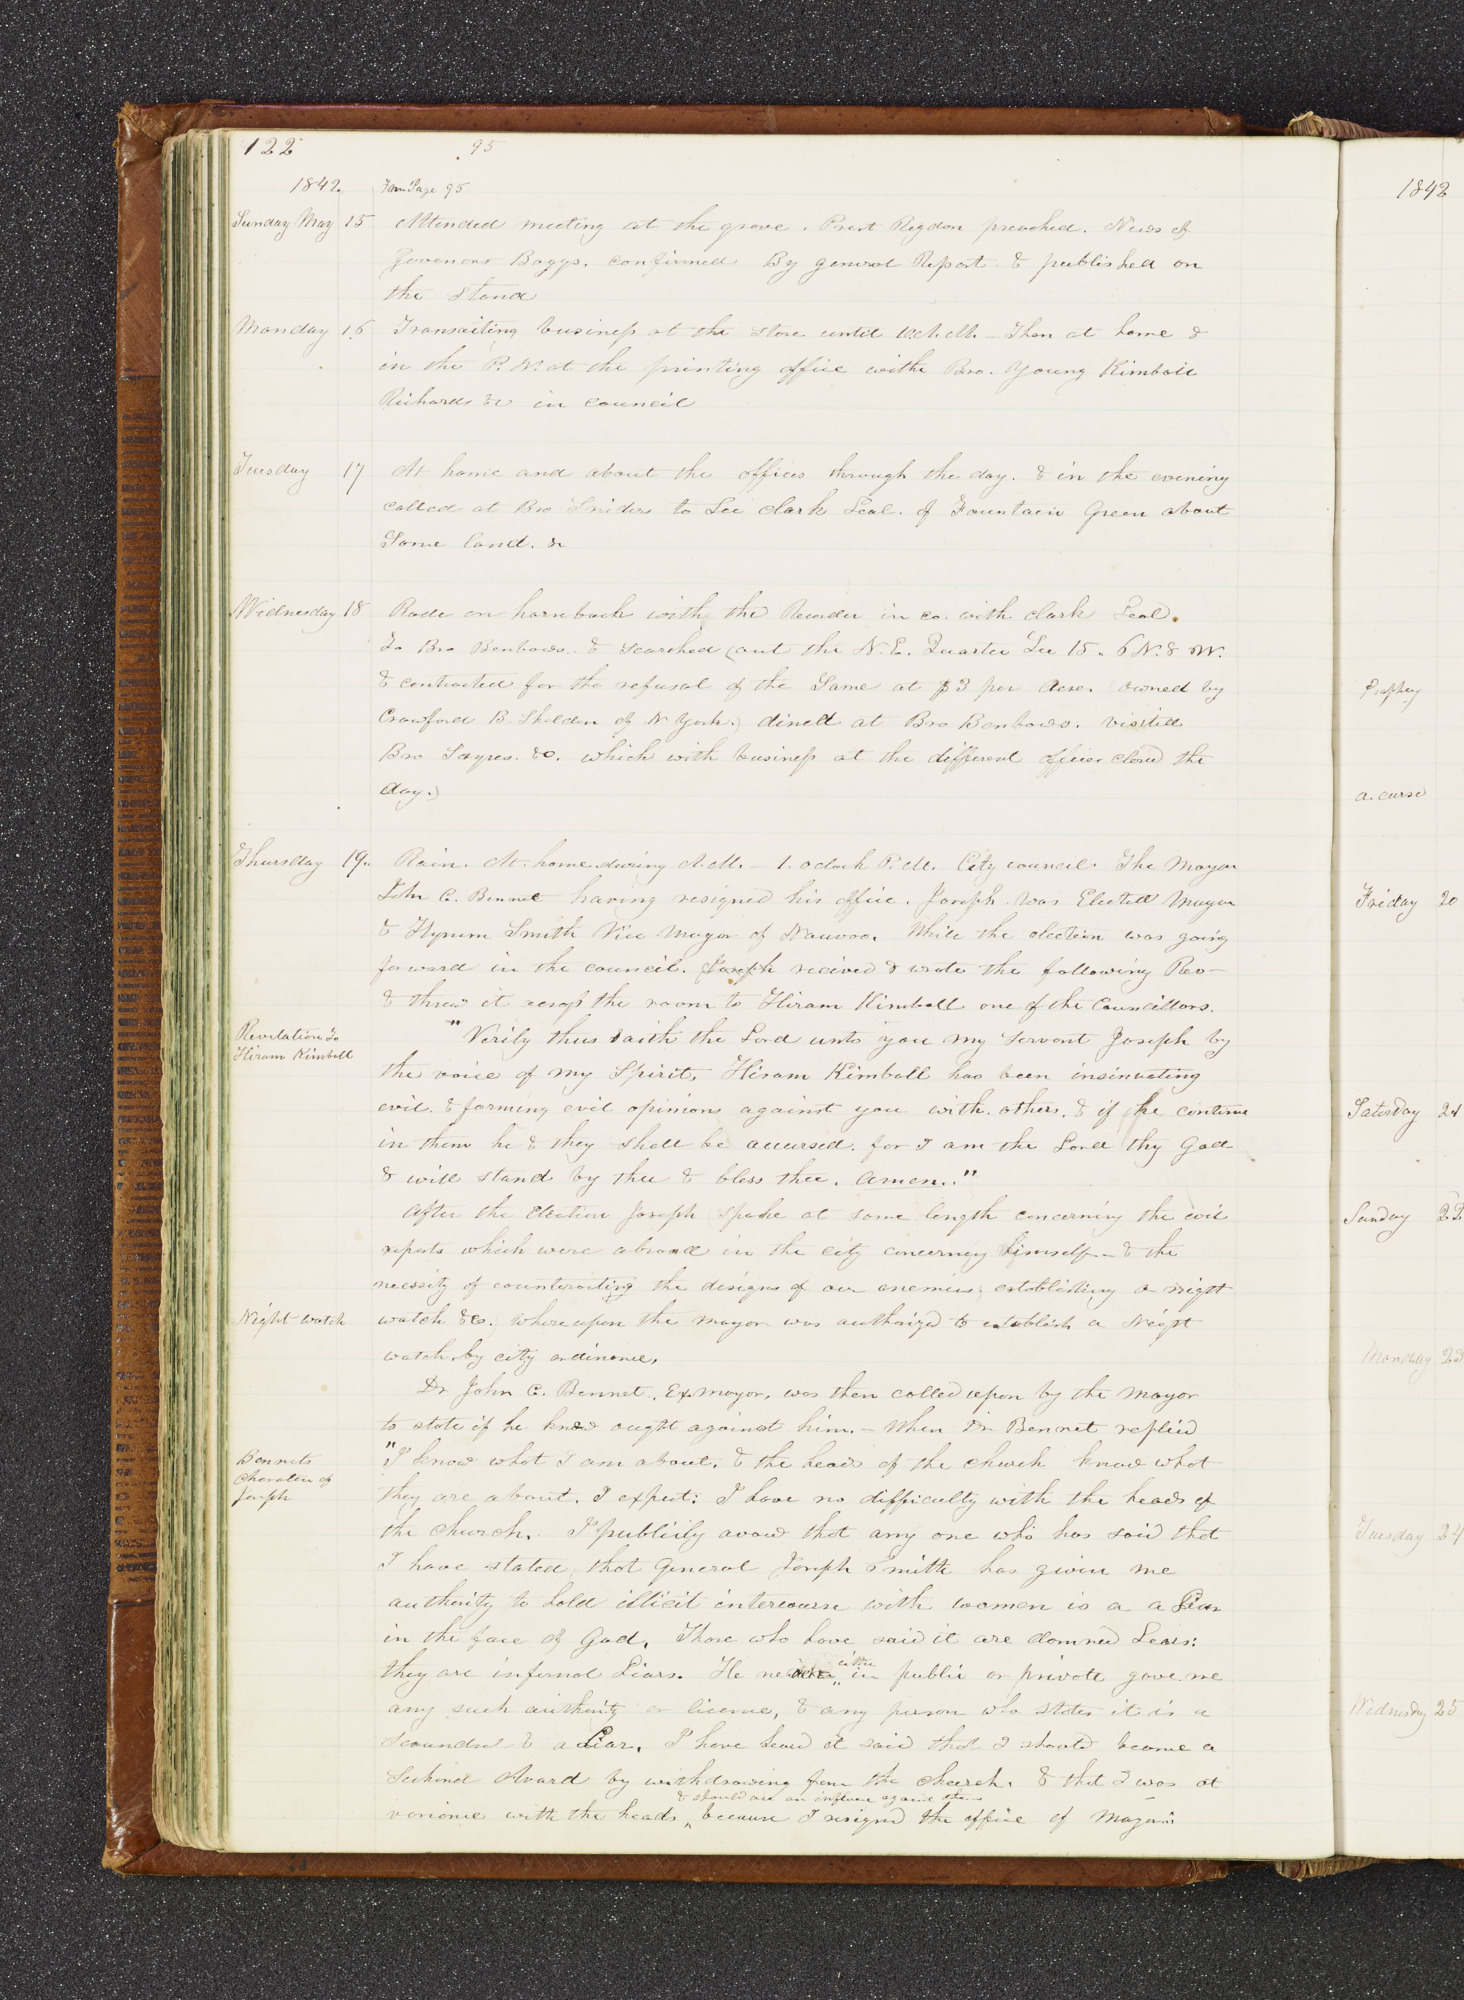 122
95
1842. From Page 95
Sunday May 15 Attended meeting at the grove. Prest Rigdon preached. News of
Govenors Boggs. confirmed By general Report. & published on
the stand
Monday 16 Transacting business at the store until 10. A.M. — Then at home &
in the P.M. at the printing office withe Bro. Young Kimball
Richards &c in council
Tuesday 17 At home and about the offices through the day. & in the evening
called at Bro Sniders to See clark Leal. of Fountain Green about
Some land. &c
Wednesday 18 Rode on horseback with the Recorder in co. with clark Leal.
To Bro Benbows. & searched (out the N.E. Quarter Sec 15. 6 N. 8 W.
& contracted for the refusal of the Same at $3 per Acre. owned by
Crawford B. Sheldon of N York.) dined at Bro Benbows. visited
Bro Sayres. &c. which with business at the different offices closed the
day.)
Thursday 19. Rain. At home during A.M. — 1. oclock P.M. City council. The Mayor
John C. Bennet having resigned his office. Joseph was Elected Mayor
& Hyrum Smith Vice Mayor of Nauvoo. While the election was going
forward in the council. Joseph recived & wrote the following Rev—
& threw it across the room to Hiram Kimball one of the Councillors.
Revelation To
Hiram Kimball
"Verily thus saith the Lord unto you my Servant Joseph by
the voice of my Spirit, Hiram Kimball has been insinuating
evil. & forming evil opinions against you with. others. & if he continue
in them he & they shall be accursed. for I am the Lord thy God
& will stand by thee & bless thee. Amen.."
After the Election Joseph spoke at some length concerning the evil
reports which were abroad in the city concerning himself — & the
necessity of counteracting the designs of our enemies; establishing a night
Night watch
watch &c. whereupon the mayor was authorized to establish a night
watch by city ordinance.
Dr John C. Bennet, Exmayor, was then called upon by the mayor
to state if he knew ought against him. — When Dr Bennet replied
Bennets
Character of
Joseph
"I know what I am about, & the heads of the church know what
they are about. I expect: I have no difficulty with the heads of
the church. I publicly avow that any one who has said that
I have stated that General Joseph Smith has given me
authority to hold illicit intercourse with women is a a Liar
in the face of God, Those who have said it are damned Liars:
they are infernal Liars. He never either in public or private gave me
any such authority or license, & any person who states it is a
Scoundrel & a Liar. I have heard it said that I should become a
Second Avard by withdrawing from the church. & that I was at
& should use an influence against them
variance with the heads, because I resigned the office of Mayor:
1842
Prophecy
a. curse
Friday 20
Saturday 21
Sunday 22
Monday 23
Tuesday 24
Wednesday 25